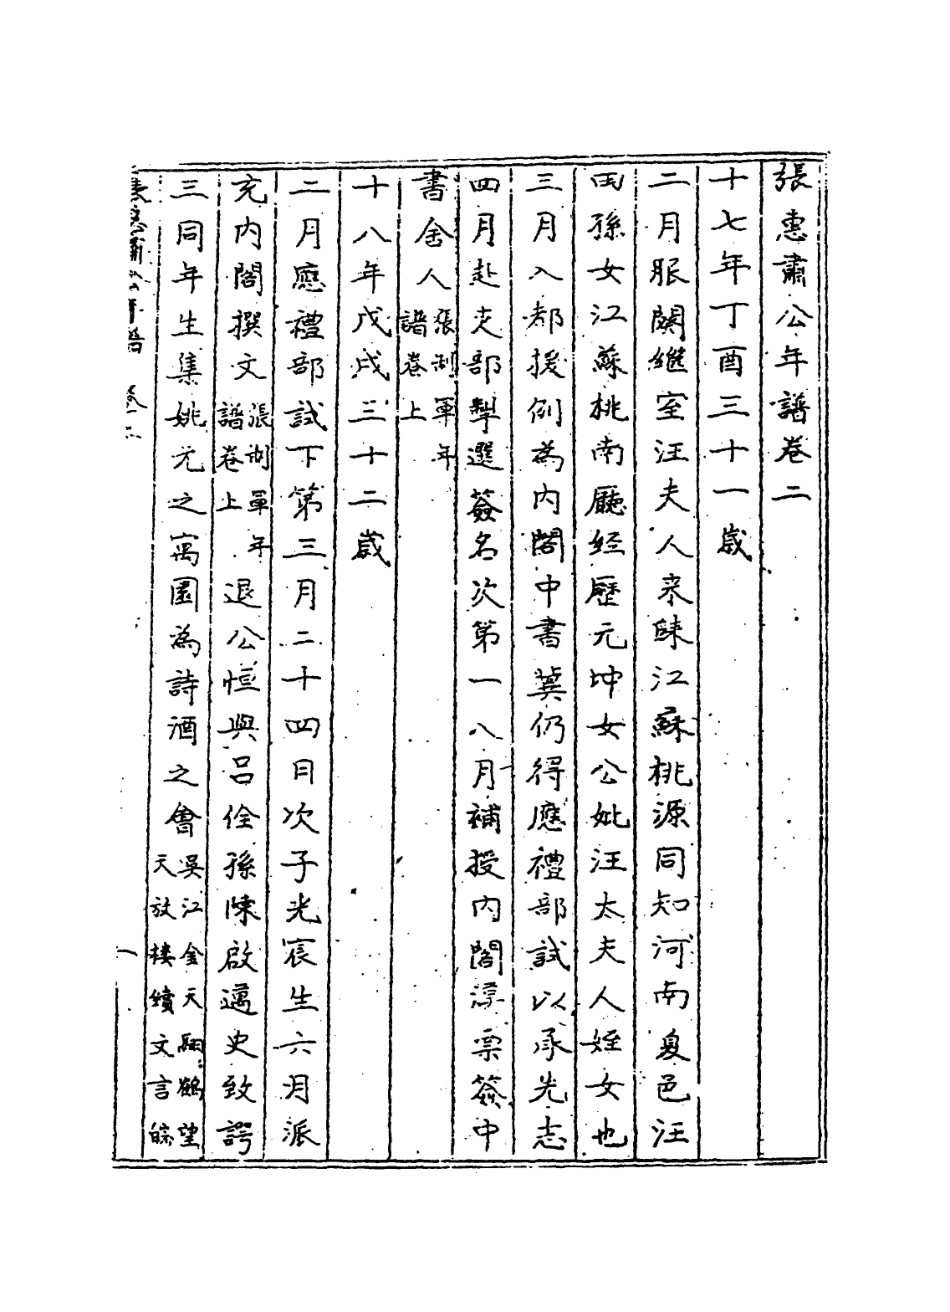 張惠肅公年譜卷二
十七年丁酉三十一歲
二月服闋繼室汪夫人來歸江蘇桃源同知河南夏邑汪
孫女江蘇桃南廳經歷元坤女公妣汪太夫人姪女也
三月入都援例為內閣中書冀仍得應禮部試以承先志
四月赴吏部掣選簽名次第一八月補授內閣漢票簽中
書舍人張制軍年譜卷上
十八年戊戌三十二歲
二月應禮部試下第三月二十四日次子光宸生六月派
充內閣撰文張制軍年譜卷上退公恒與呂佺孫陳啟邁史致諤
三同年生集姚元之寓園為詩酒之會吳江金天翮鶴望天放樓續文言皖
張惠肅公年譜 卷二 一